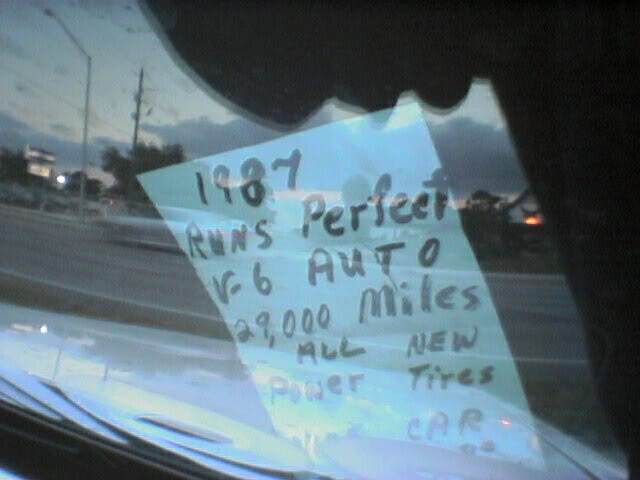 1987
RUNS Perfect
V-6 AUTO
29,000 Miles
ALL NEW
Power Tires
CAR